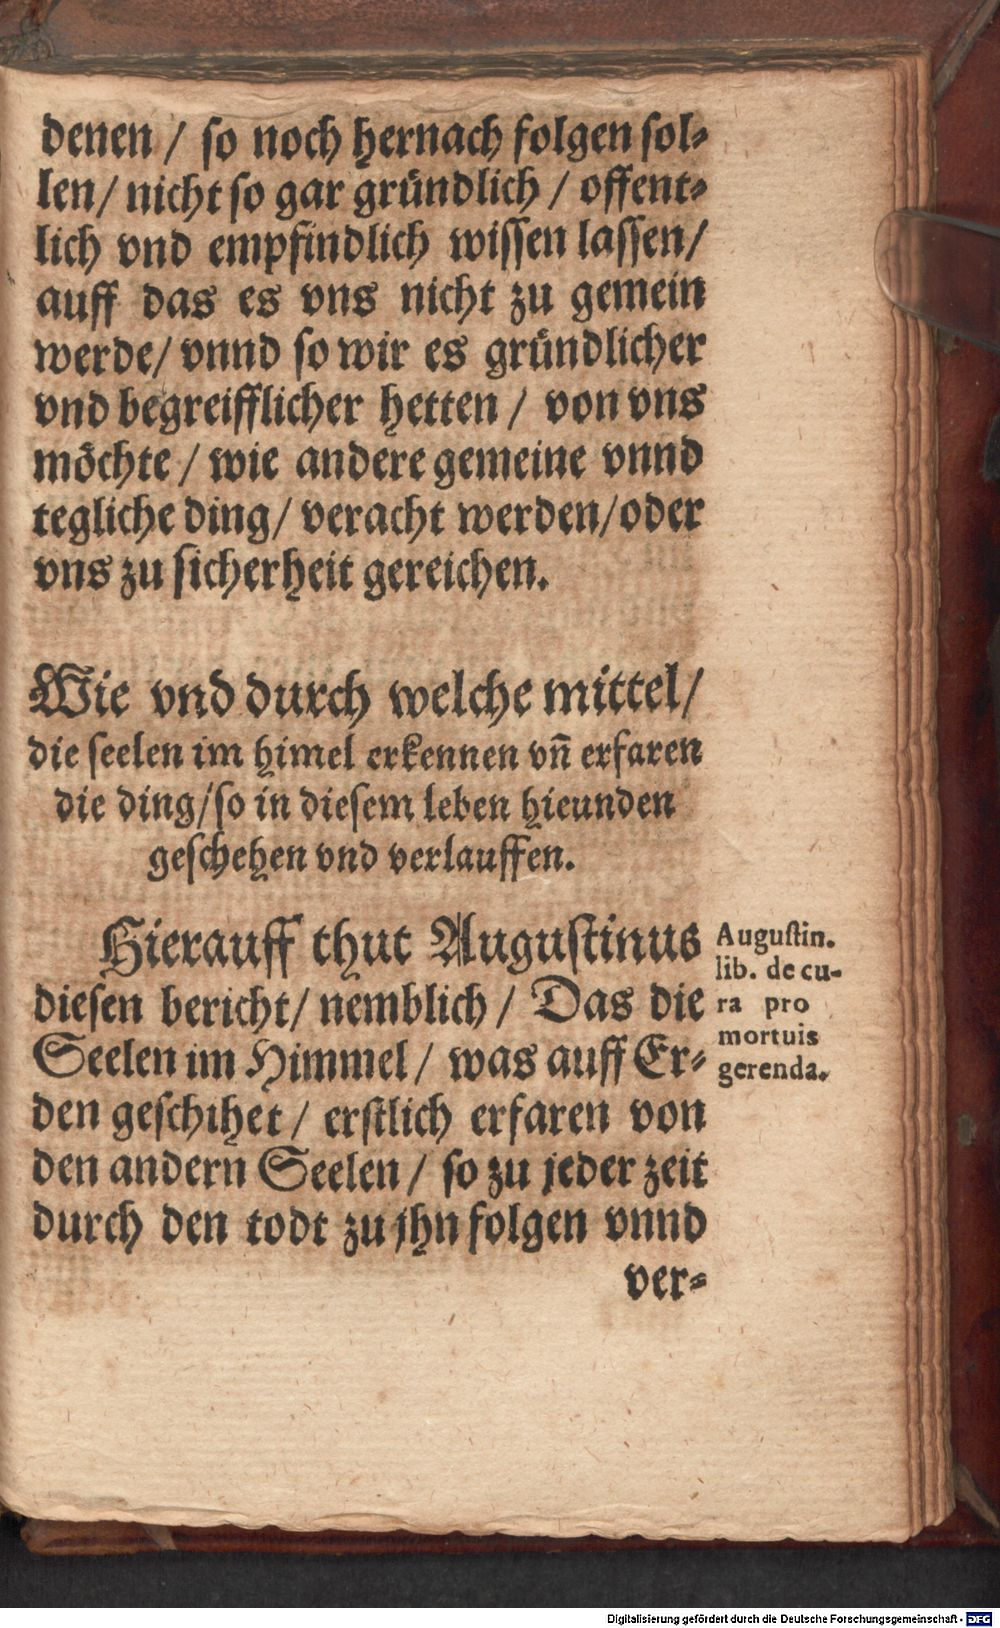 denen / so noch hernach folgen sol⸗
len / nicht so gar gründlich / offent⸗
lich vnd empfindlich wissen lassen /
auff das es vns nicht zu gemein
werde / vnnd so wir es gründlicher
vnd begreifflicher hetten / von vns
möchte / wie andere gemeine vnnd
tegliche ding / veracht werden / oder
vns zu sicherheit gereichen.
Wie vnd durch welche mittel /
die seelen im himel erkennen vñ erfaren
die ding / so in diesem leben hieunden
geschehen vnd verlauffen.
Hierauff thut Augustinus
diesen bericht / nemblich / Das die
Seelen im Himmel / was auff Er⸗
den geschihet / erstlich erfaren von
den andern Seelen / so zu jeder zeit
durch den todt zu jhn folgen vnnd
ver⸗
Augustin.
lib. de cu-
ra pro
mortuis
gerenda.
Digitalisierung gefördert durch die Deutsche Forschungsgemeinschaft - DFG